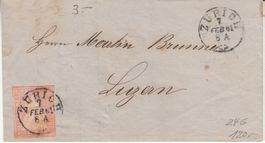 3-
ZÜRICH
7
FEB 61
Herrn Martin Brunner
Luzern
ZÜRICH
7
FEB 61
8 A
24G
120.-